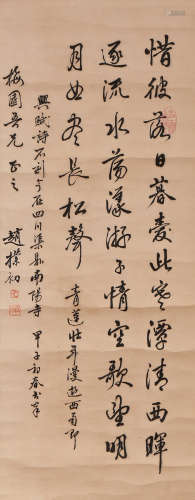 惜彼落日暮愛此寒潭清西暉
逐流水蕩漾游子情空歌望明
月曲尽長松聲 青蓮壯年漫遊西蜀即
興賦詩石刻于在四川渠縣南陽寺 甲子初春书奉
梅園吾兄 正之 趙樸初